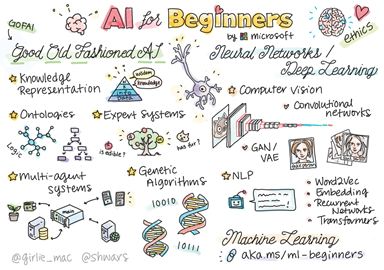 AI for Beginners
by Microsoft
GOFAI
ethics
Good Old Fashioned AI
Knowledge
Representation
wisdom
knowledge
Ontologies
Logic
Expert Systems
is edible?
has fur?
Multi-agent
systems
Genetic
Algorithms
10010
10111
Neural Networks /
Deep Learning
Computer Vision
Convolutional
networks
GAN/
VAE
NLP
Word2Vec
Embedding
Recurrent
Networks
Transformers
Machine Learning
aka.ms/ml-beginners
@girlie_mac @shwars